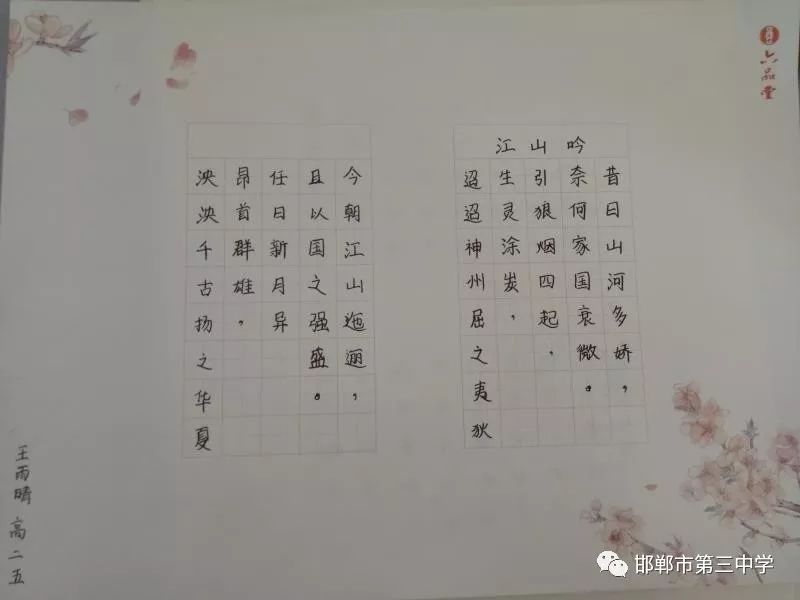 江山吟
昔日山河多娇，
奈何家国衰微。
引狼烟四起，
生灵涂炭，
迢迢神州屈之夷狄
今朝江山迤逦，
且以国之强盛。
任日新月异
昂首群雄，
泱泱千古扬之华夏
王雨晴 高二五
六品堂
邯郸市第三中学